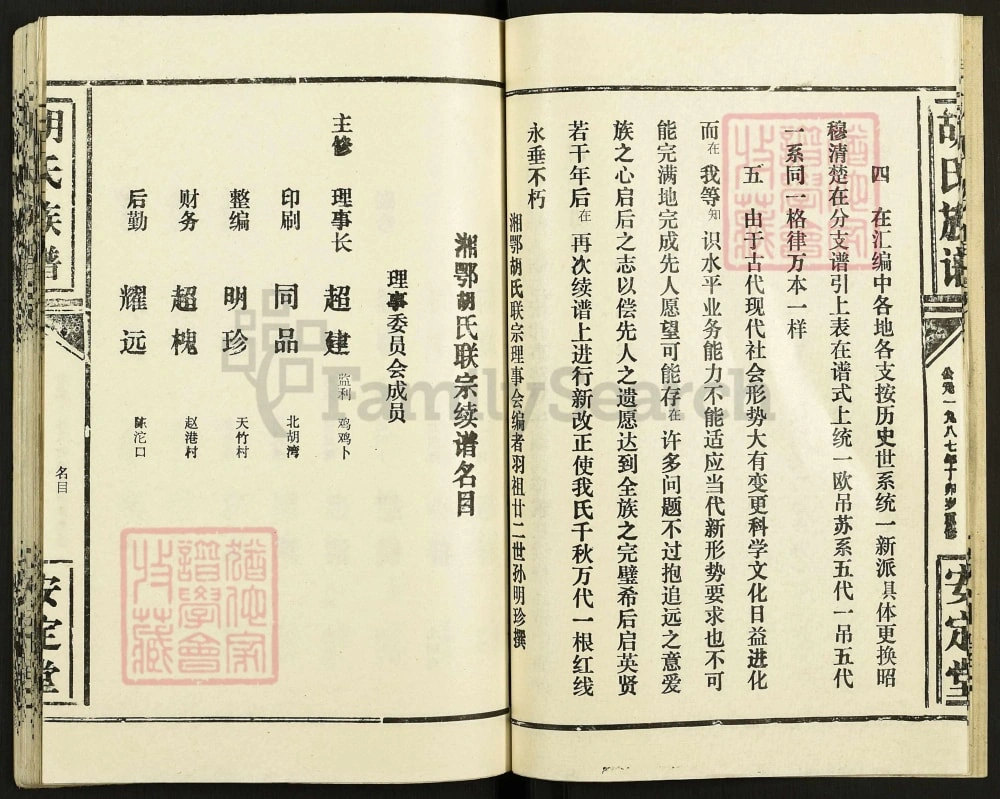 胡氏族谱
公元一九八七年丁卯岁重修
安定堂
四 在汇编中各地各支按历史世系统一新派具体更换昭
穆清楚在分支谱引上表在谱式上统一欧吊苏系五代一吊五代
一系同一格律万本一样
五 由于古代现代社会形势大有变更科学文化日益进化
而在我等知识水平业务能力不能适应当代新形势要求也不可
能完满地完成先人愿望可能存在许多问题不过抱追远之意爱
族之心启后之志以偿先人之遗愿达到全族之完璧希后启英贤
若干年后在再次续谱上进行新改正使我氏千秋万代一根红线
永垂不朽
湘鄂胡氏联宗理事会编者羽祖廿二世孙明珍撰
湘鄂胡氏联宗续谱名目
理事委员会成员
主修 理事长 超建 监利 鸡鸡卜
印刷 同品 北胡湾
整编 明珍 天竹村
财务 超槐 赵港村
后勤 耀远 陈沱口
胡氏族谱
名目
安定堂
猶他家譜學會收藏
猶他家譜學會收藏
FamilySearch